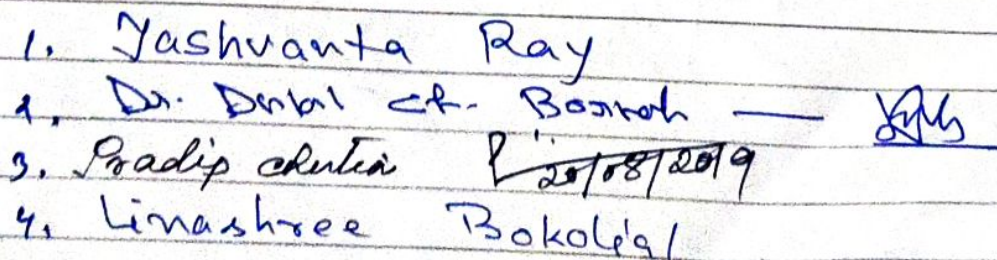 1. Yashvanta Ray
2. Dr. Ch. Boruah —
3. Pradip Chutia 20/08/2019
4. Linashree Bokolial